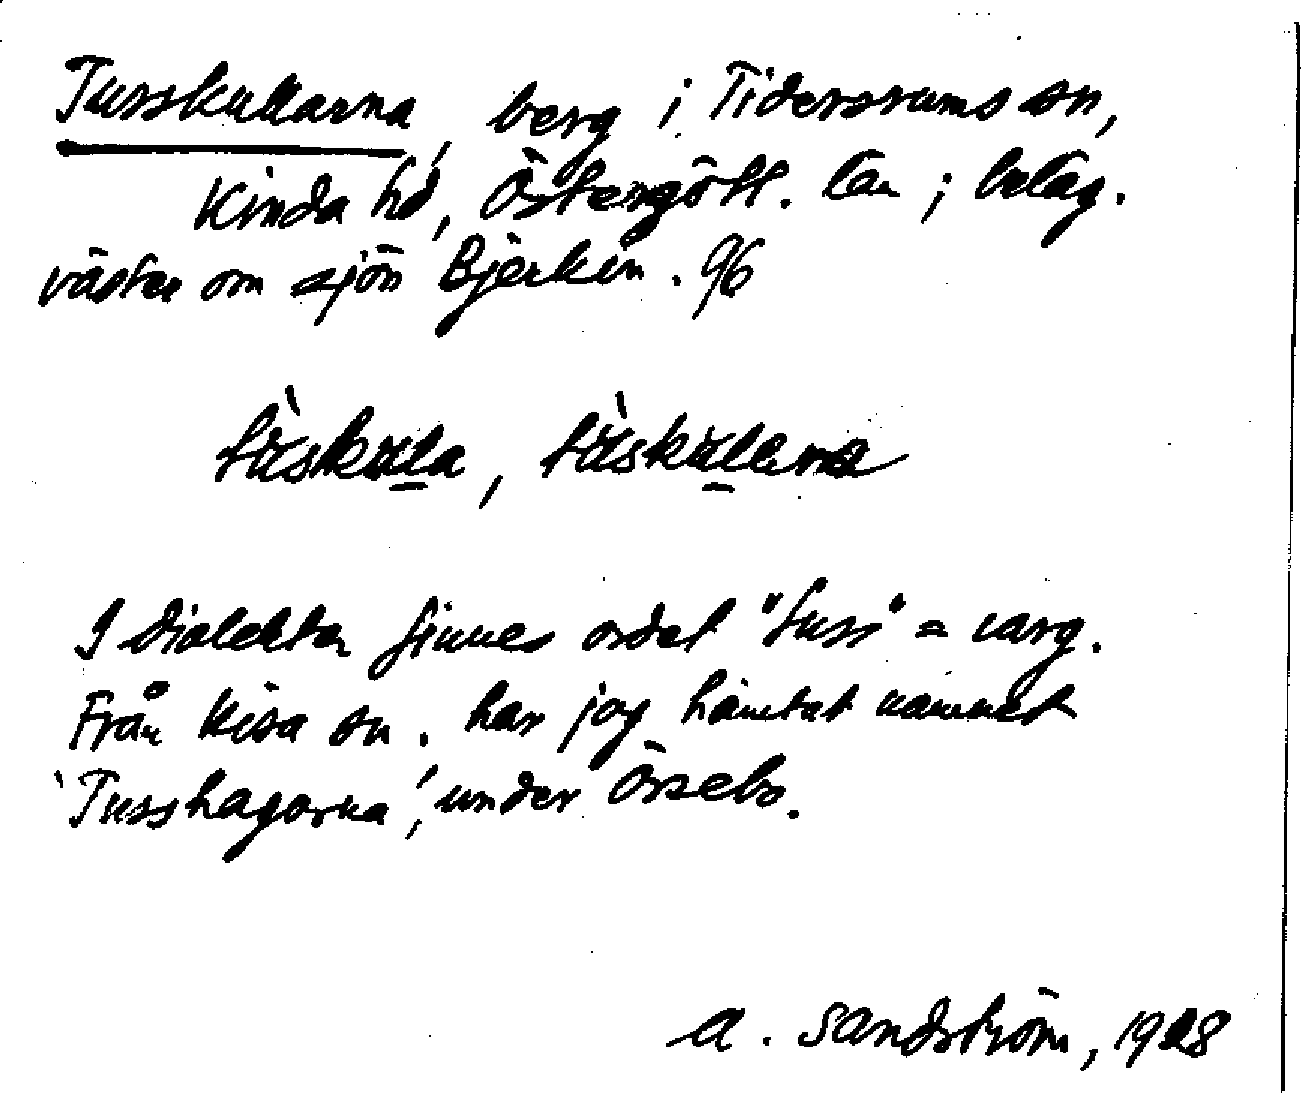 Tusskullarna, berg i Tidersrums sn,
Kinda hd, Östergötl. län; beläg.
väster om sjön Björken. 96
I dialekten finnes ordet "tuss" = varg.
Från Kisa sn. har jag hämtat namnet
'Tusshagarna', under Örsebo.
A. Sandström, 1928